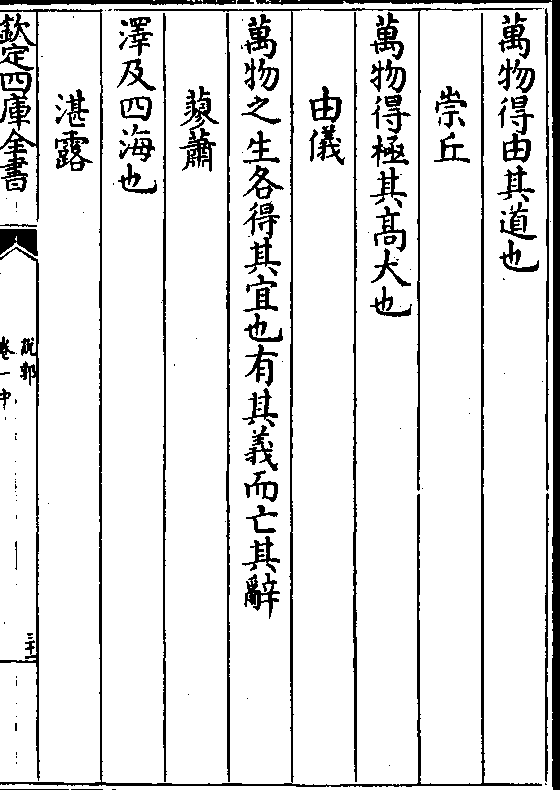 萬物得由其道也
崇丘
萬物得極其髙大也
由儀
萬物之生各得其宜也有其義而亡其辭
蓼蕭
澤及四海也
湛露
欽定四庫全書
說郛
卷一中